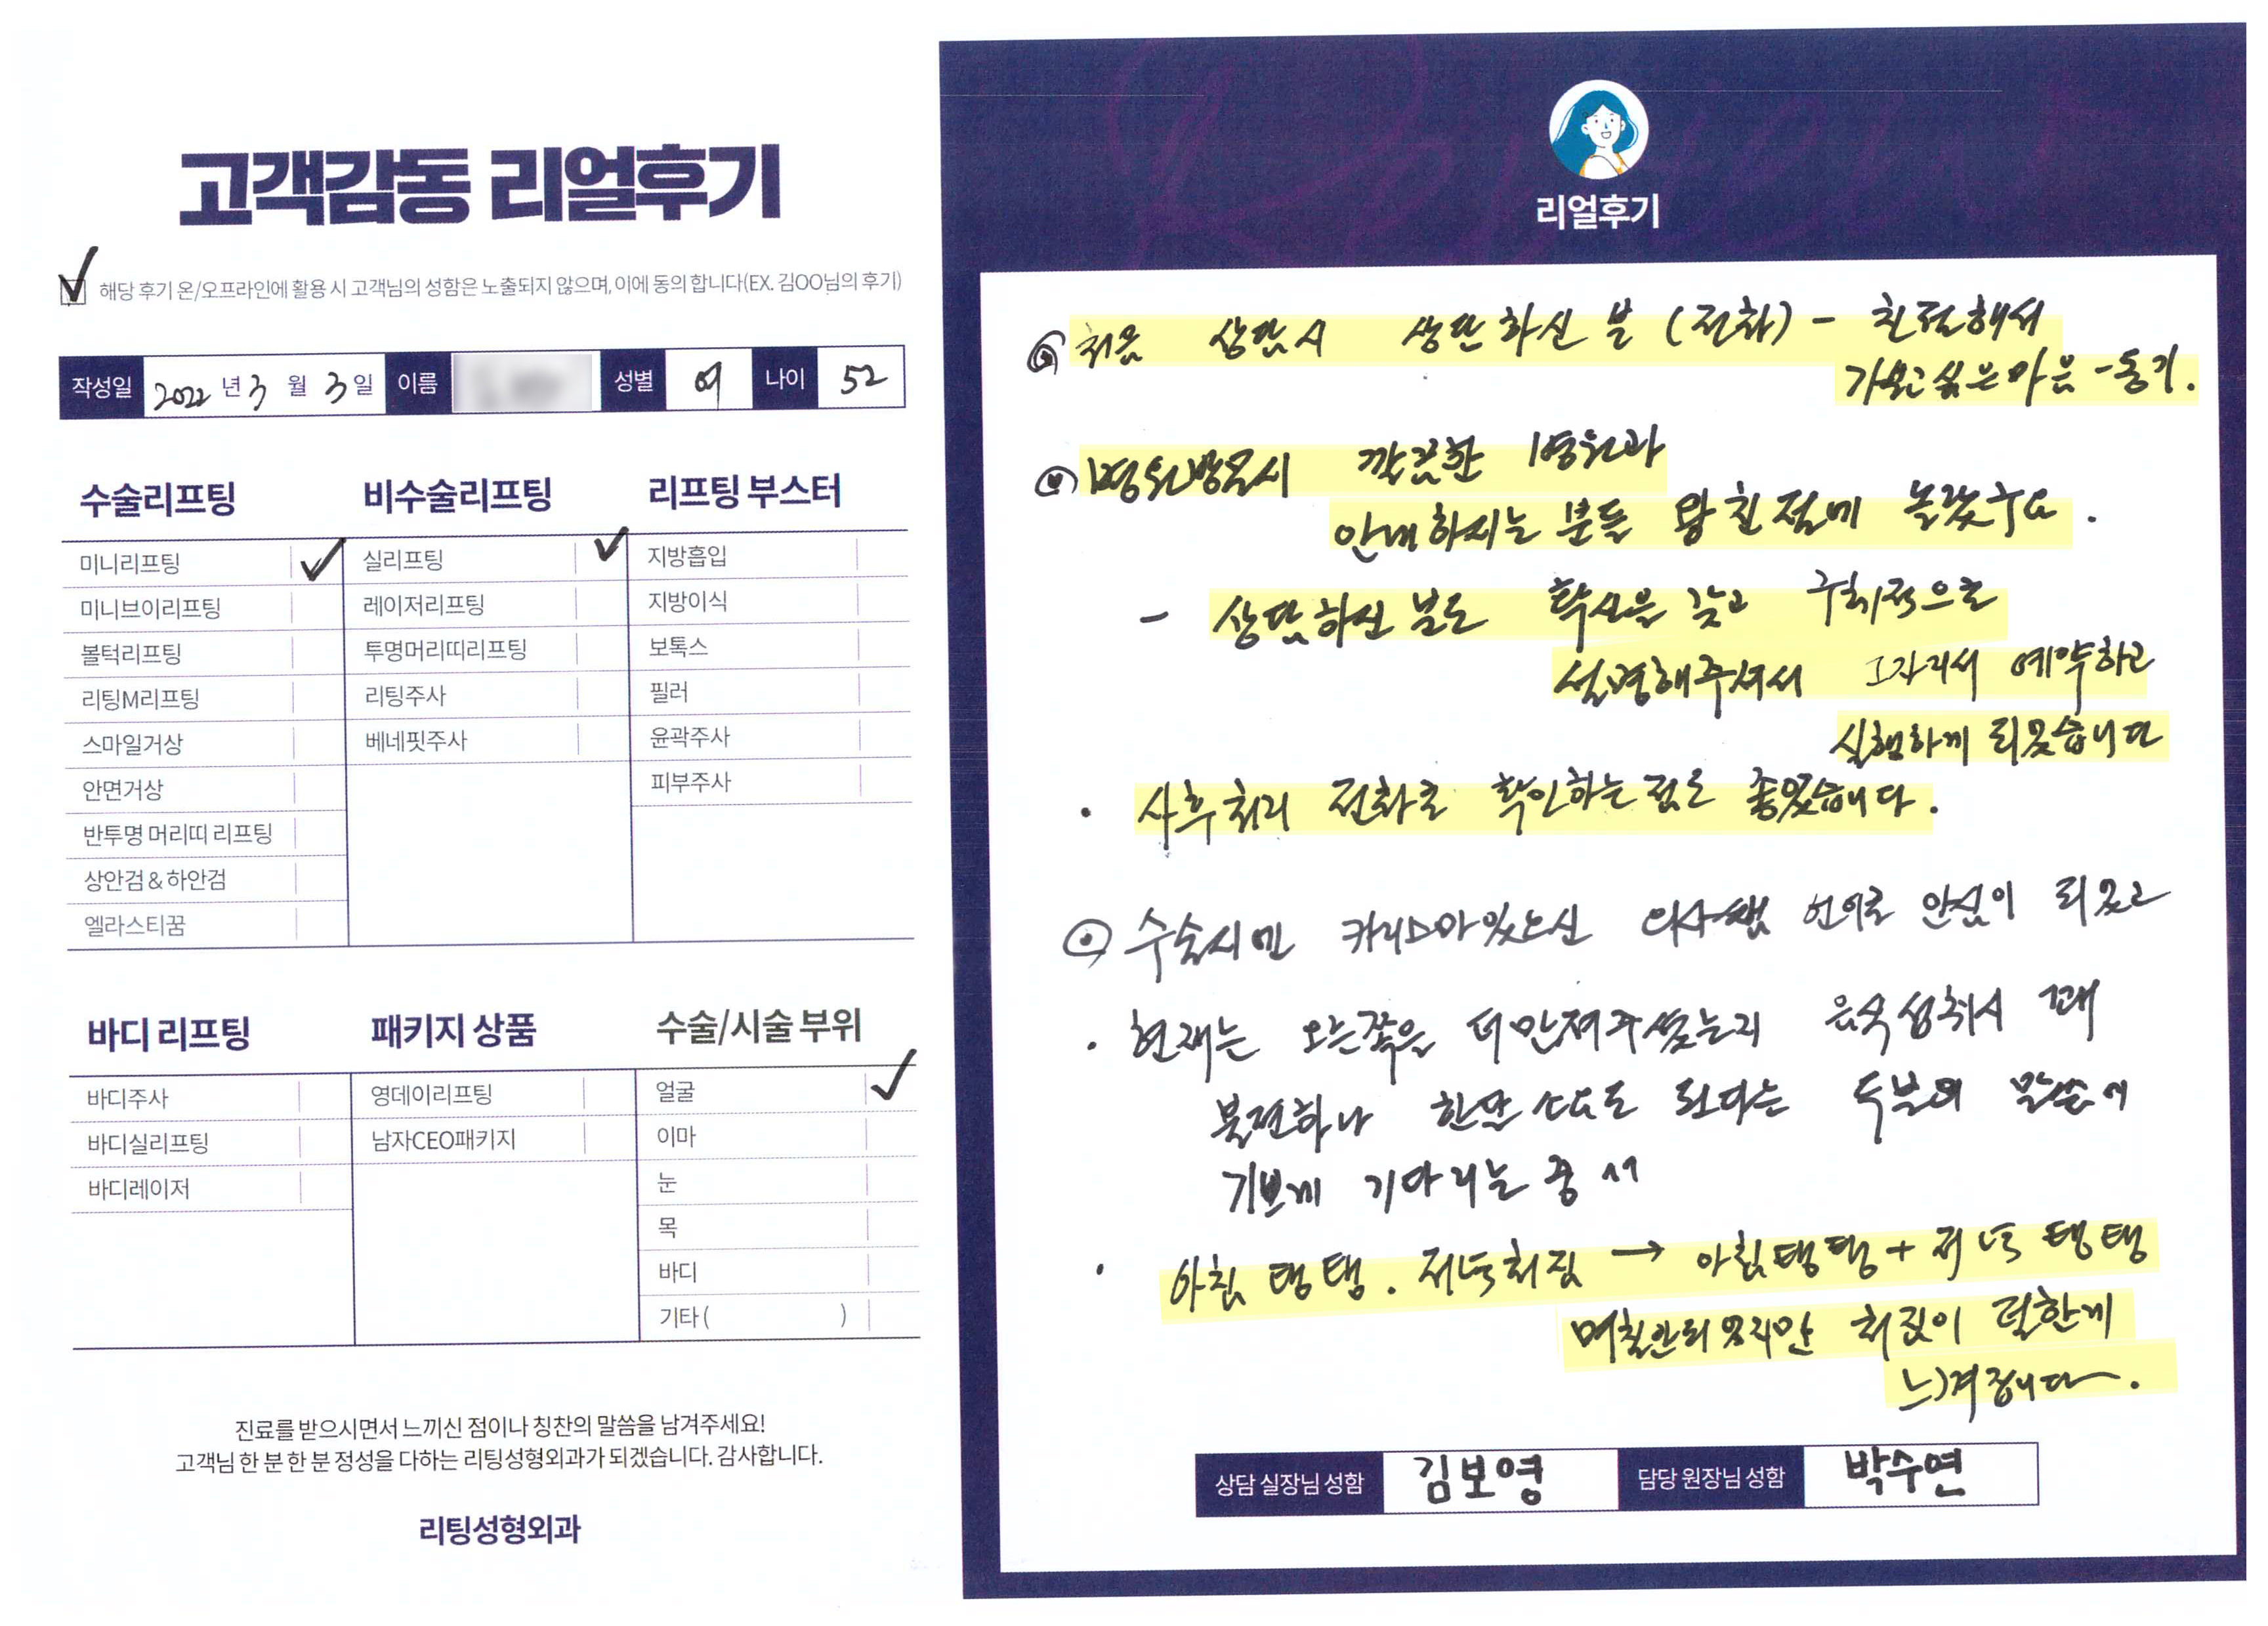 고객감동 리얼후기
해당 후기 온/오프라인에 활용 시 고객님의 성함은 노출되지 않으며, 이에 동의 합니다(EX. 김OO님의 후기)
작성일 2022 년 3 월 3 일 이름 성별 여 나이 52
수술리프팅
미니리프팅
미니브이리프팅
볼턱리프팅
리팅M리프팅
스마일거상
안면거상
반투명 머리띠 리프팅
상안검 & 하안검
엘라스티꿈
비수술리프팅
실리프팅
레이저리프팅
투명머리띠리프팅
리팅주사
베네핏주사
리프팅 부스터
지방흡입
지방이식
보톡스
필러
윤곽주사
피부주사
바디 리프팅
바디주사
바디실리프팅
바디레이저
패키지 상품
영데이리프팅
남자CEO패키지
수술/시술 부위
얼굴
이마
눈
목
바디
기타 ( )
진료를 받으시면서 느끼신 점이나 칭찬의 말씀을 남겨주세요!
고객님 한 분 한 분 정성을 다하는 리팅성형외과가 되겠습니다. 감사합니다.
리팅성형외과
리얼후기
처음 상담시 상담하신 분 (전화) - 친절해서
가보고싶은마음 - 동기.
병원방문시 깔끔한 병원과
안내하시는 분들 왕친절에 놀랐구요.
- 상담하신 분도 확신을 갖고 구체적으로
설명해주셔서 그자리서 예약하고
실행하게 되었습니다
· 사후처리 전화로 확인하는점도 좋았습니다.
수술시엔 카리스마있으신 의사쌤 언어로 안심이 되었고
· 현재는 오른쪽을 더만져주셨는지 음식섭취시 꽤
불편하나 한달 정도 된다는 두분의 말씀에
기쁘게 기다리는 중
· 아침 탱탱. 저녁처짐 → 아침탱탱 + 저녁 탱탱
며칠안되었지만 처짐이 덜한게
느껴집니다.
상담 실장님 성함 김보영 담당 원장님 성함 박수연